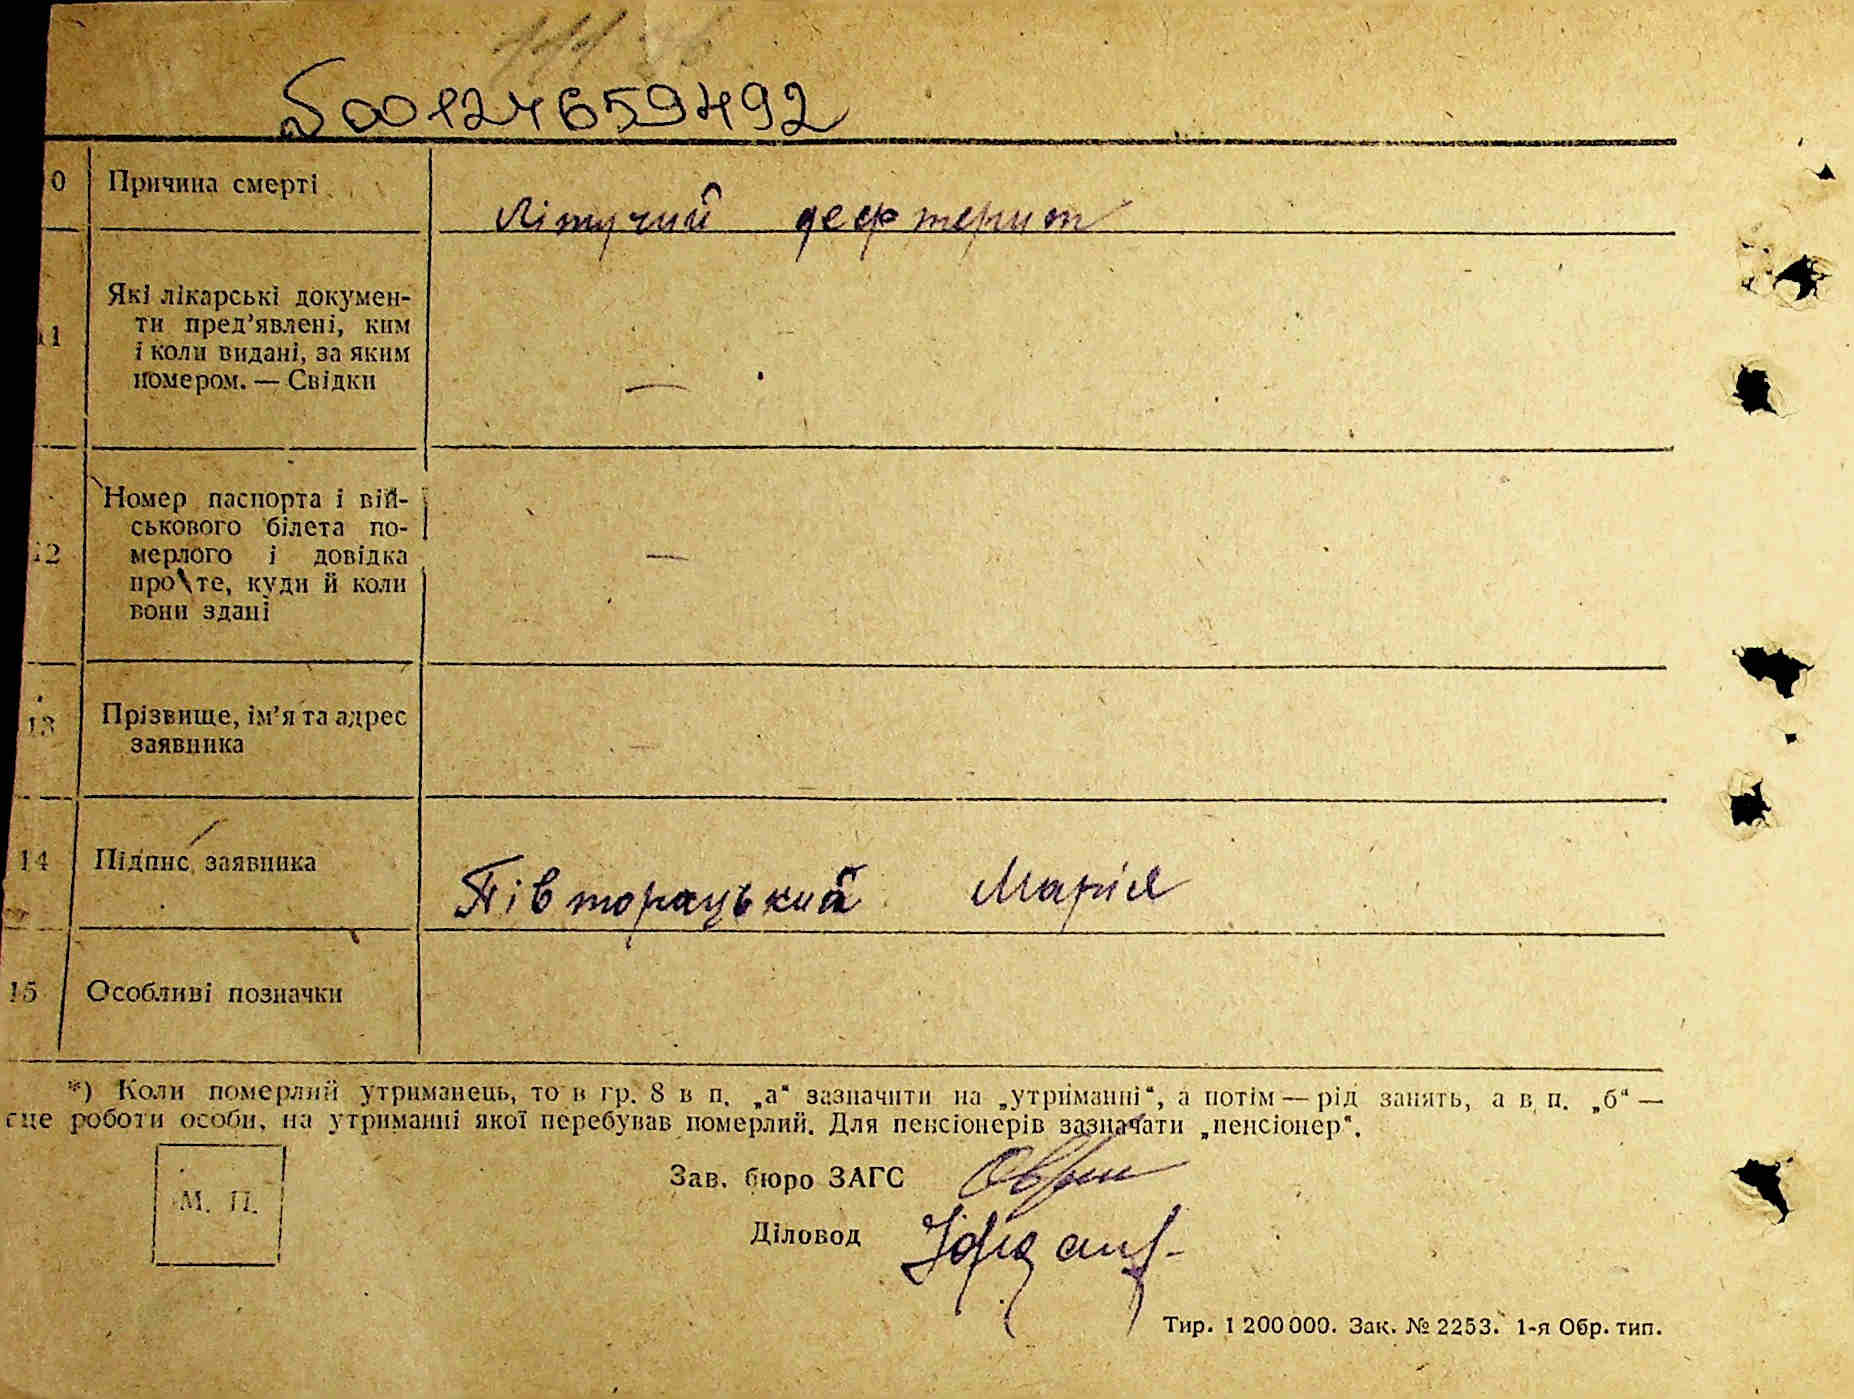 S00124659492
0 Причина смерті Літучий дефтерит
11 Які лікарські докумен-
ти пред’явлені, ким
і коли видані, за яким
номером. — Свідки —
12 Номер паспорта і вій-
ськового білета по-
мерлого і довідка —
про те, куди й коли
вони здані
13 Прізвище, ім’я та адрес
заявника
14 Підпис заявника Півторацький Марія
15 Особливі позначки
*) Коли померлий утриманець, то в гр. 8 в п. „а“ зазначити на „утриманні“, а потім — рід занять, а в п. „б“ —
сце роботи особи, на утриманні якої перебував померлий. Для пенсіонерів зазначати „пенсіонер“.
М. П.
Зав. бюро ЗАГС
Діловод
Тир. 1 200 000. Зак. № 2253. 1-я Обр. тип.